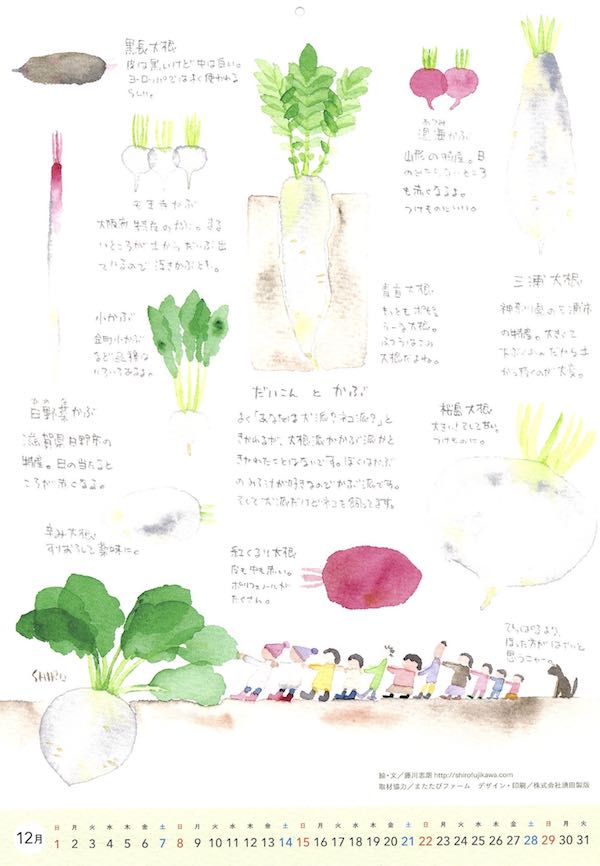 黒長大根
皮は黒いけど中は白い。
ヨーロッパではよく使われる
らしい。
あつみ
温海かぶ
山形の特産。日
の当たらないところ
も赤くなるよ。
つけものにいい。
大阪府特産のかぶ。まる
いところが土からだいぶ出
ているので浮きかぶとも。
三浦大根
神奈川県の三浦市
の特産。大きくて
から抜くのが大変。
青首大根
もっともポピュ
ラーな大根。
ふつうはこの
大根だよね。
小かぶ
金町小かぶ
など品種は
いろいろあるよ。
だいこん と かぶ
よく「あなたは犬派?ネコ派?」と
きかれるが、大根派かかぶ派かと
きかれたことはないです。ぼくはかぶ
のみそ汁が好きなのでかぶ派です。
そして犬派だけどネコを飼ってます。
桜島大根
つけものに。
ひのな
日野菜かぶ
滋賀県日野町の
特産。日の当たると
ころが赤くなる。
辛み大根
すりおろして薬味に。
紅くるり大根
皮も中も赤い。
ポリフェノールが
たくさん。
ひっぱるより、
ほった方がはやいと
思うニャ〜。
SHIRO
絵・文／藤川志朗 http://shirofujikawa.com
取材協力／またたびファーム　デザイン・印刷／株式会社湧田製版
12月
日 月 火 水 木 金 土 日 月 火 水 木 金 土 日 月 火 水 木 金 土 日 月 火 水 木 金 土 日 月 火
1 2 3 4 5 6 7 8 9 10 11 12 13 14 15 16 17 18 19 20 21 22 23 24 25 26 27 28 29 30 31